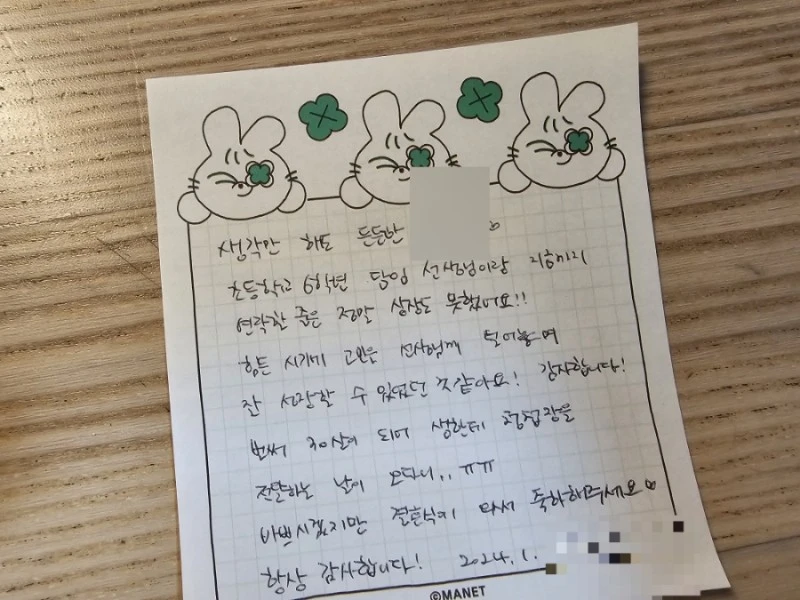 생각만 해도 든든한
초등학교 6학년 담임 선생님이랑 지금까지
연락할 줄은 정말 상상도 못했어요!!
힘든 시기에 고민은 선생님께 털어놓으며
잘 성장할 수 있었던 것 같아요! 감사합니다!
벌써 30살이 되어 생한테 청첩장을
전달하는 날이 오다니.. ㅠㅠ
바쁘시겠지만 결혼식에 와서 축하해주세요♡
항상 감사합니다! 2024.1.
©MANET